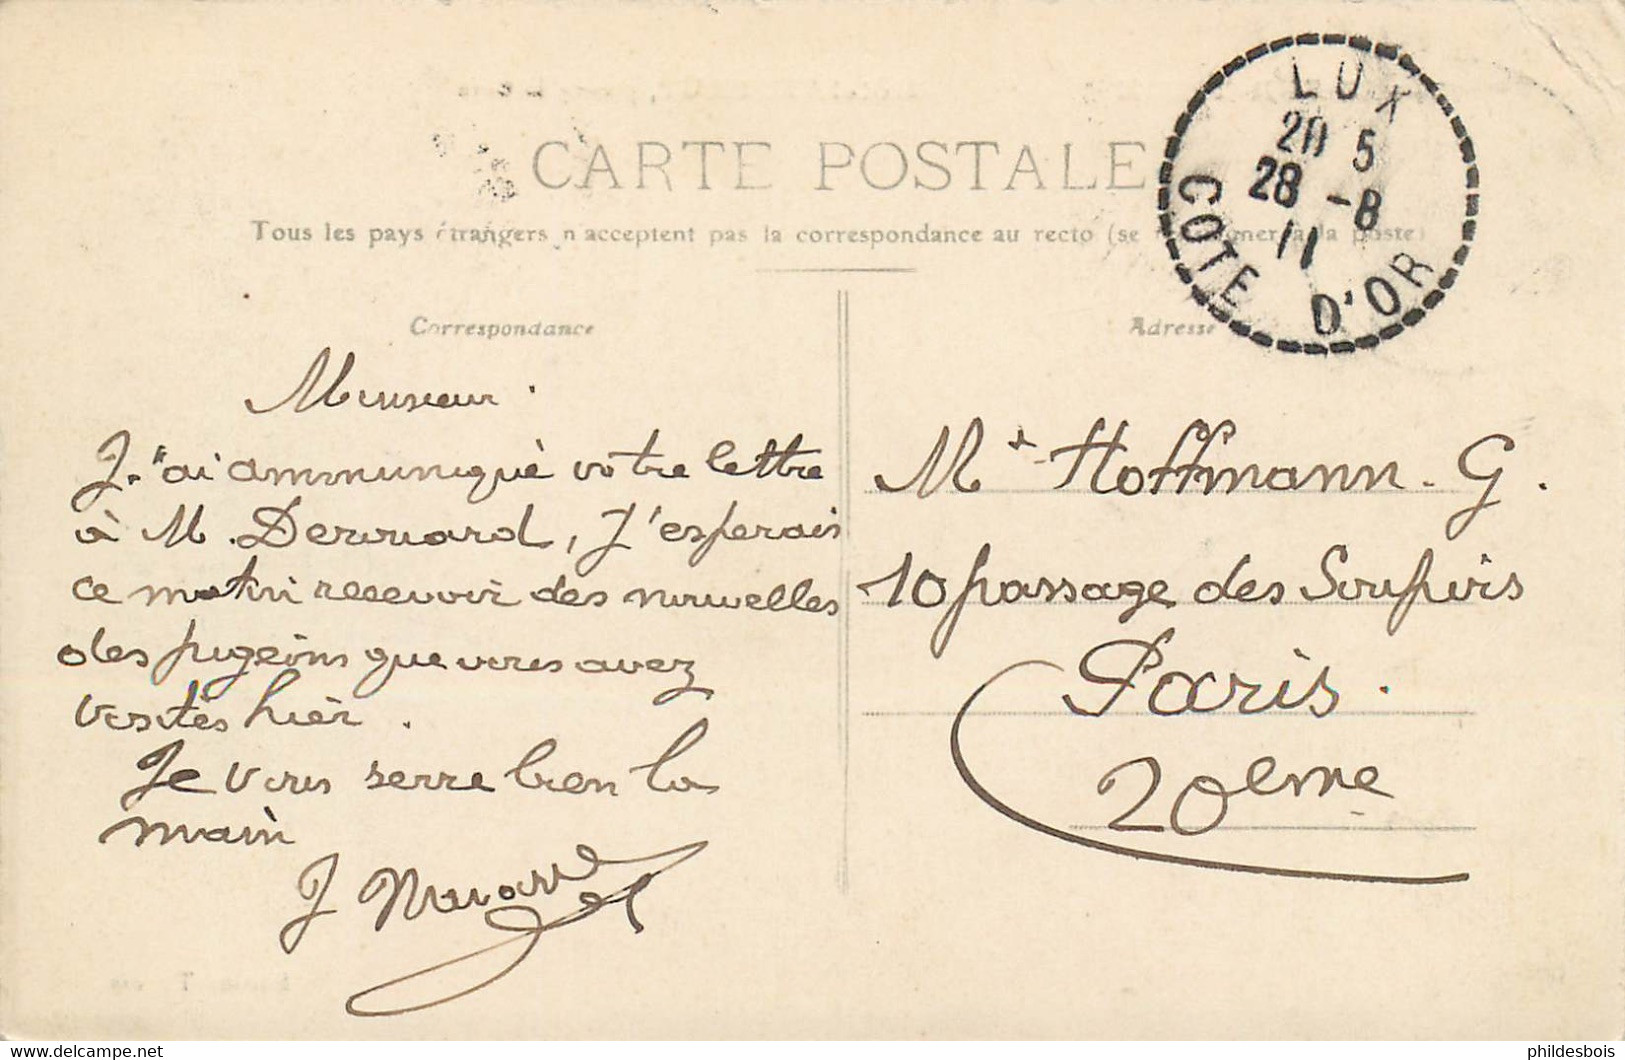 CARTE POSTALE
Tous les pays étrangers n'acceptent pas la correspondance au recto (se à la poste)
LUX
20 5
28 -8
11
COTE D'OR
Correspondance
Monsieur.
J'ai ammuniqué votre lettre
à M. Derouard, J'esperais
ce matin recevoir des nouvelles
des pigeons que vous avez
visités hier.
Je vous serre bien la
main
J
Adresse
Mr Hoffmann. G.
10 passage des Soupirs
Paris.
20eme
phildesbois